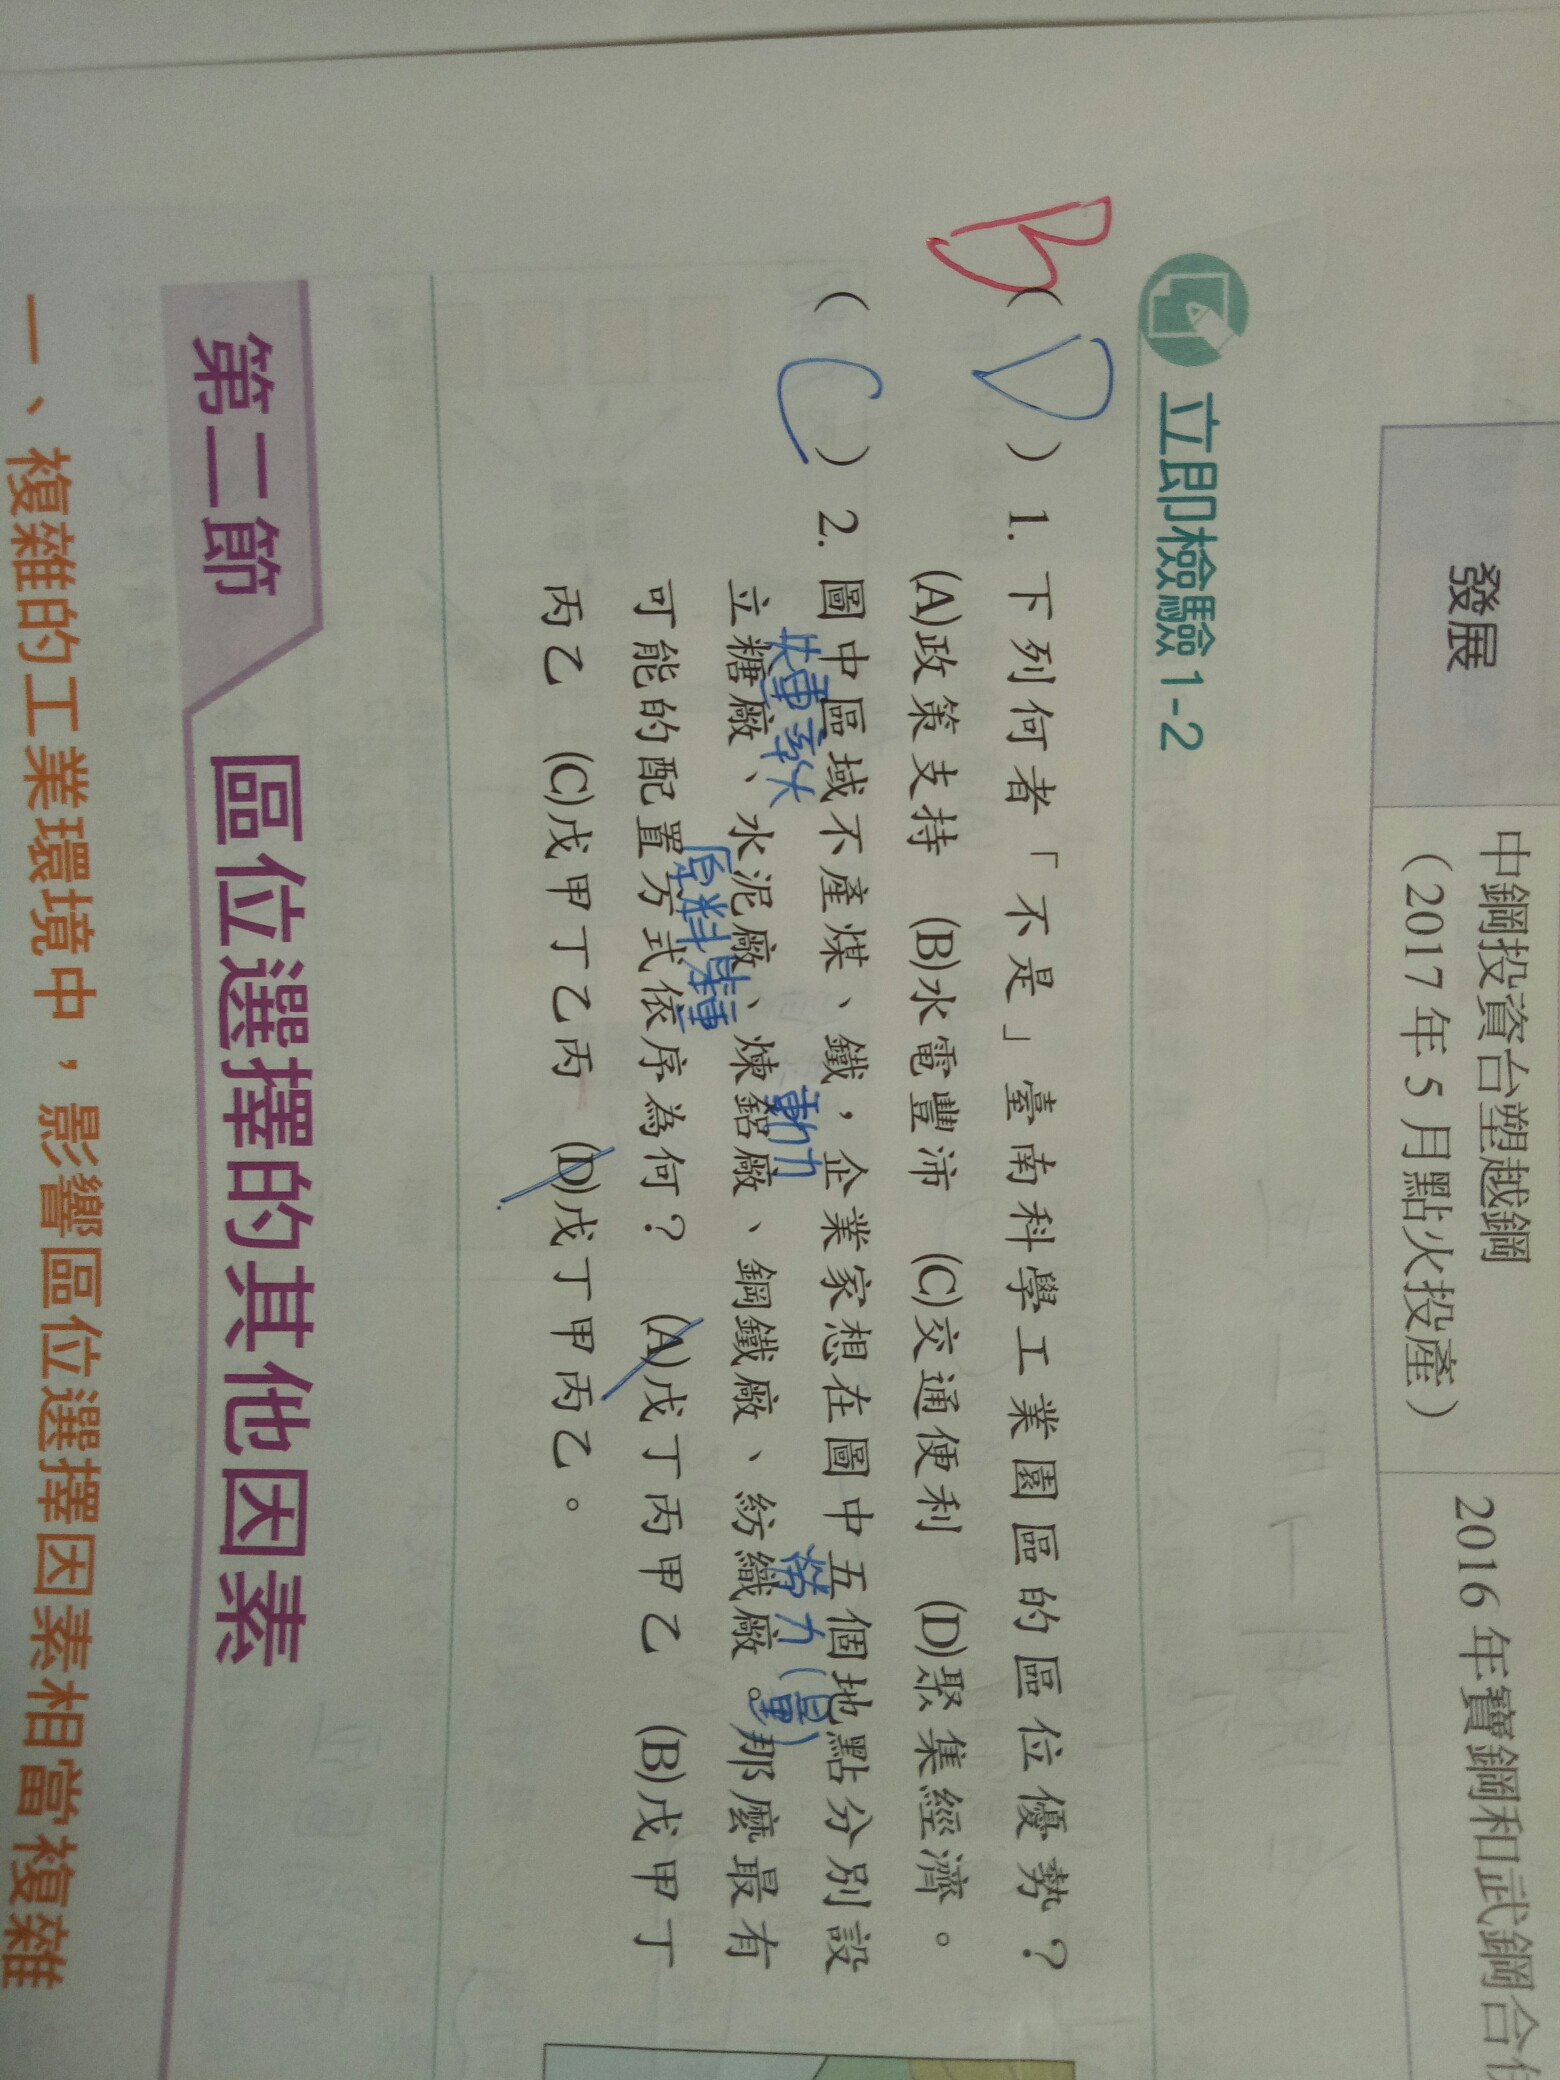 發展
中鋼投資台塑越鋼
（2017年5月點火投產）
2016年寶鋼和武鋼合併
立即檢驗1-2
B
( D ) 1. 下列何者「不是」臺南科學工業園區的區位優勢？
(A)政策支持 (B)水電豐沛 (C)交通便利 (D)聚集經濟。
( C ) 2. 圖中區域不產煤、鐵，企業家想在圖中五個地點分別設
失重率大 動力 勞力(量)
立糖廠、水泥廠、煉鋁廠、鋼鐵廠、紡織廠。那麼最有
原料集重
可能的配置方式依序為何？ (A)戊丁丙甲乙 (B)戊甲丁
丙乙 (C)戊甲丁乙丙 (D)戊丁甲丙乙。
第二節 區位選擇的其他因素
一、複雜的工業環境中，影響區位選擇因素相當複雜